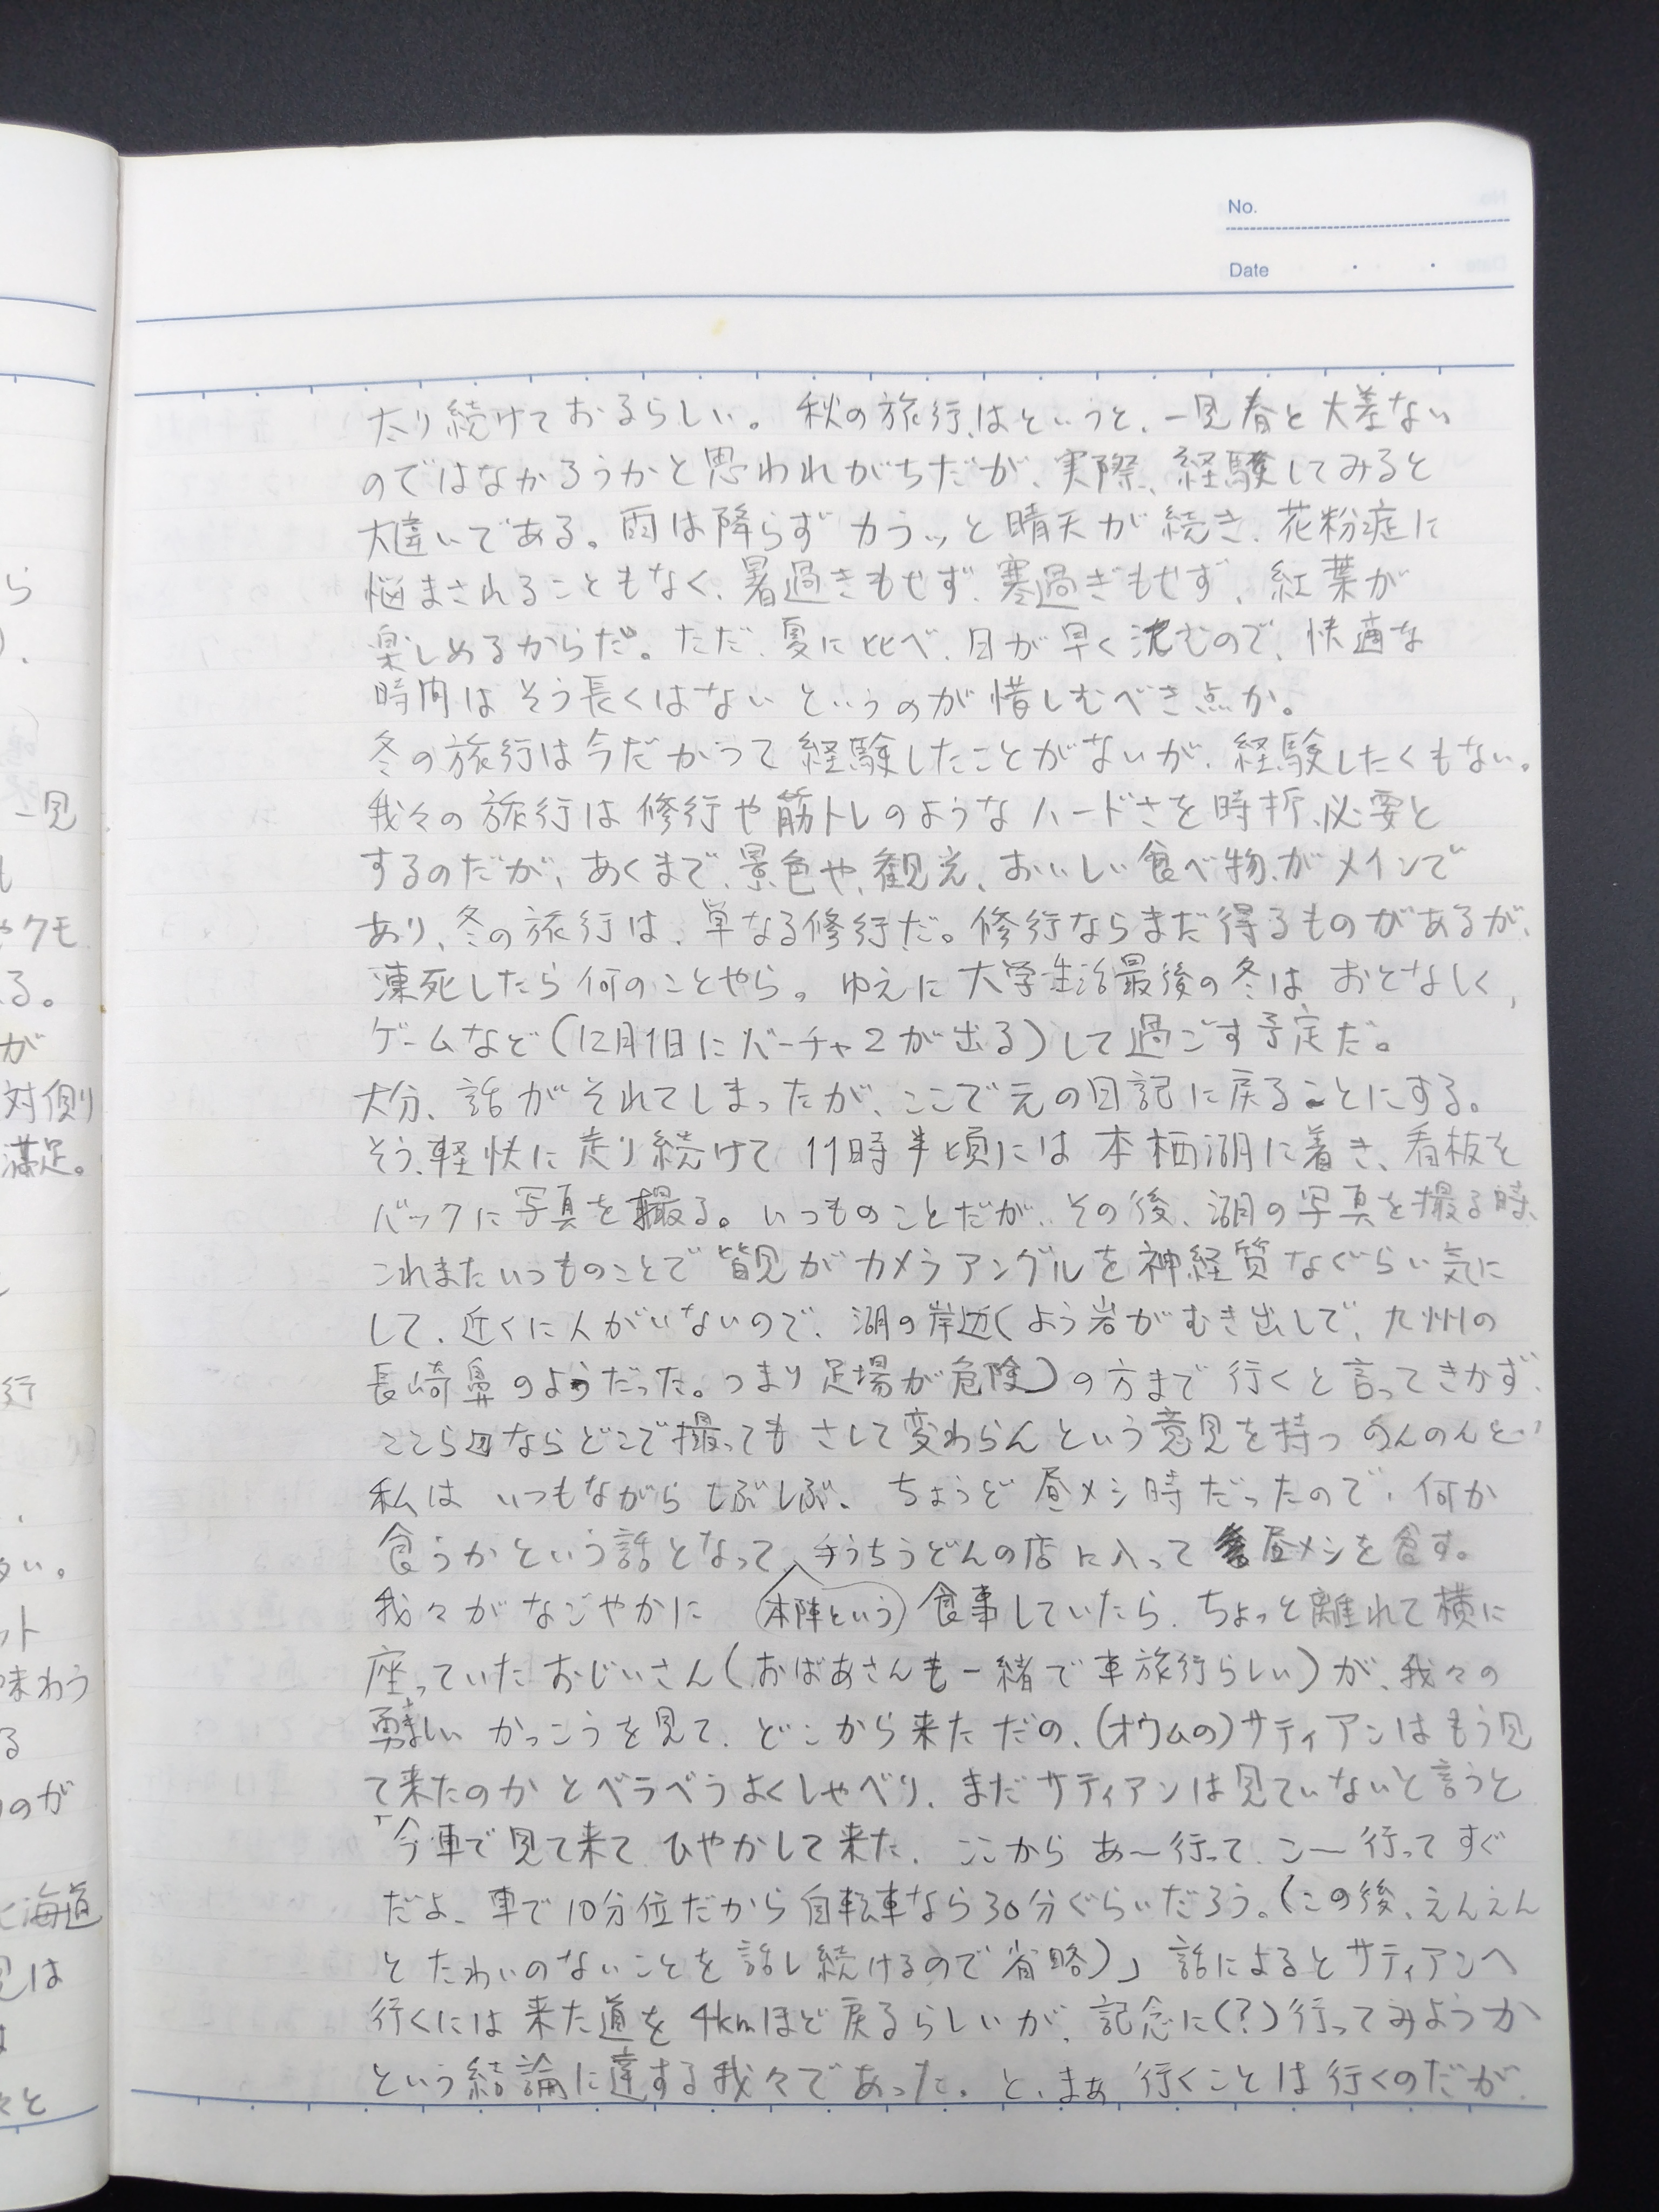 No.
Date
太り続けておるらしい。秋の旅行はというと、一見春と大差ない
のではなかろうかと思われがちだが、実際、経験してみると
大違いである。雨は降らずカラッと晴天が続き、花粉症に
悩まされることもなく、暑過ぎもせず、寒過ぎもせず、紅葉が
楽しめるからだ。ただ、夏に比べ、日が早く沈むので、快適な
時間はそう長くはないというのが惜しむべき点か。
冬の旅行は今だかつて経験したことがないが、経験したくもない。
我々の旅行は修行や筋トレのようなハードさを時折、必要と
するのだが、あくまで、景色や、観光、おいしい食べ物、がメインで
あり、冬の旅行は、単なる修行だ。修行ならまだ得るものがあるが、
凍死したら何のことやら。ゆえに大学生活最後の冬は おとなしく、
ゲームなど(12月1日にバーチャ2が出る)して過ごす予定だ。
大分、話がそれてしまったが、ここで元の日記に戻ることにする。
そう、軽快に走り続けて 11時半頃には本栖湖に着き、看板を
バックに写真を撮る。いつものことだが、その後、湖の写真を撮る時、
これまたいつものことで皆見がカメラアングルを神経質なぐらい気に
して、近くに人がいないので、湖の岸辺(よう岩がむき出しで、九州の
長崎鼻のようだった。つまり足場が危険)の方まで行くと言ってきかず、
ここら辺ならどこで撮ってもさして変わらんという意見を持つのんのんと
私は いつもながらしぶしぶ、ちょうど昼メシ時だったので、何か
食うかという話となって、手うちうどんの店に入って昼メシを食す。
我々がなごやかに (本陣という) 食事していたら、ちょっと離れて横に
座っていたおじいさん(おばあさんも一緒で車旅行らしい)が、我々の
勇ましいかっこうを見て、どこから来ただの、(オウムの)サティアンはもう見
て来たのかとベラベラよくしゃべり、まだサティアンは見ていないと言うと
「今車で見て来てひやかして来た、ここからあ〜行って、こ〜行ってすぐ
だよ、車で10分位だから自転車なら30分ぐらいだろう。(この後、えんえん
とたわいのないことを話し続けるので省略)」話によるとサティアンへ
行くには来た道を4kmほど戻るらしいが、記念に(?)行ってみようか
という結論に達する我々であった。と、まぁ 行くことは行くのだが、
ら
一見
も
クモ
る。
が
対側
満足。
行
い。
ット
味わう
る
のが
北海道
見は
と